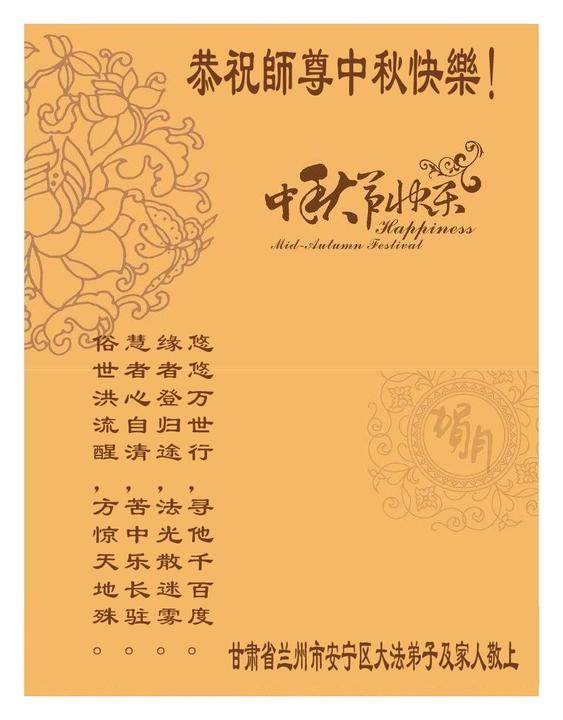 恭祝師尊中秋快樂！
中秋节快乐
Happiness
Mid-Autumn Festival
悠悠万世行，寻他千百度。
缘者登归途，法光散迷雾。
慧者心自清，苦中乐长驻。
俗世洪流醒，方惊天地殊。
甘肃省兰州市安宁区大法弟子及家人敬上